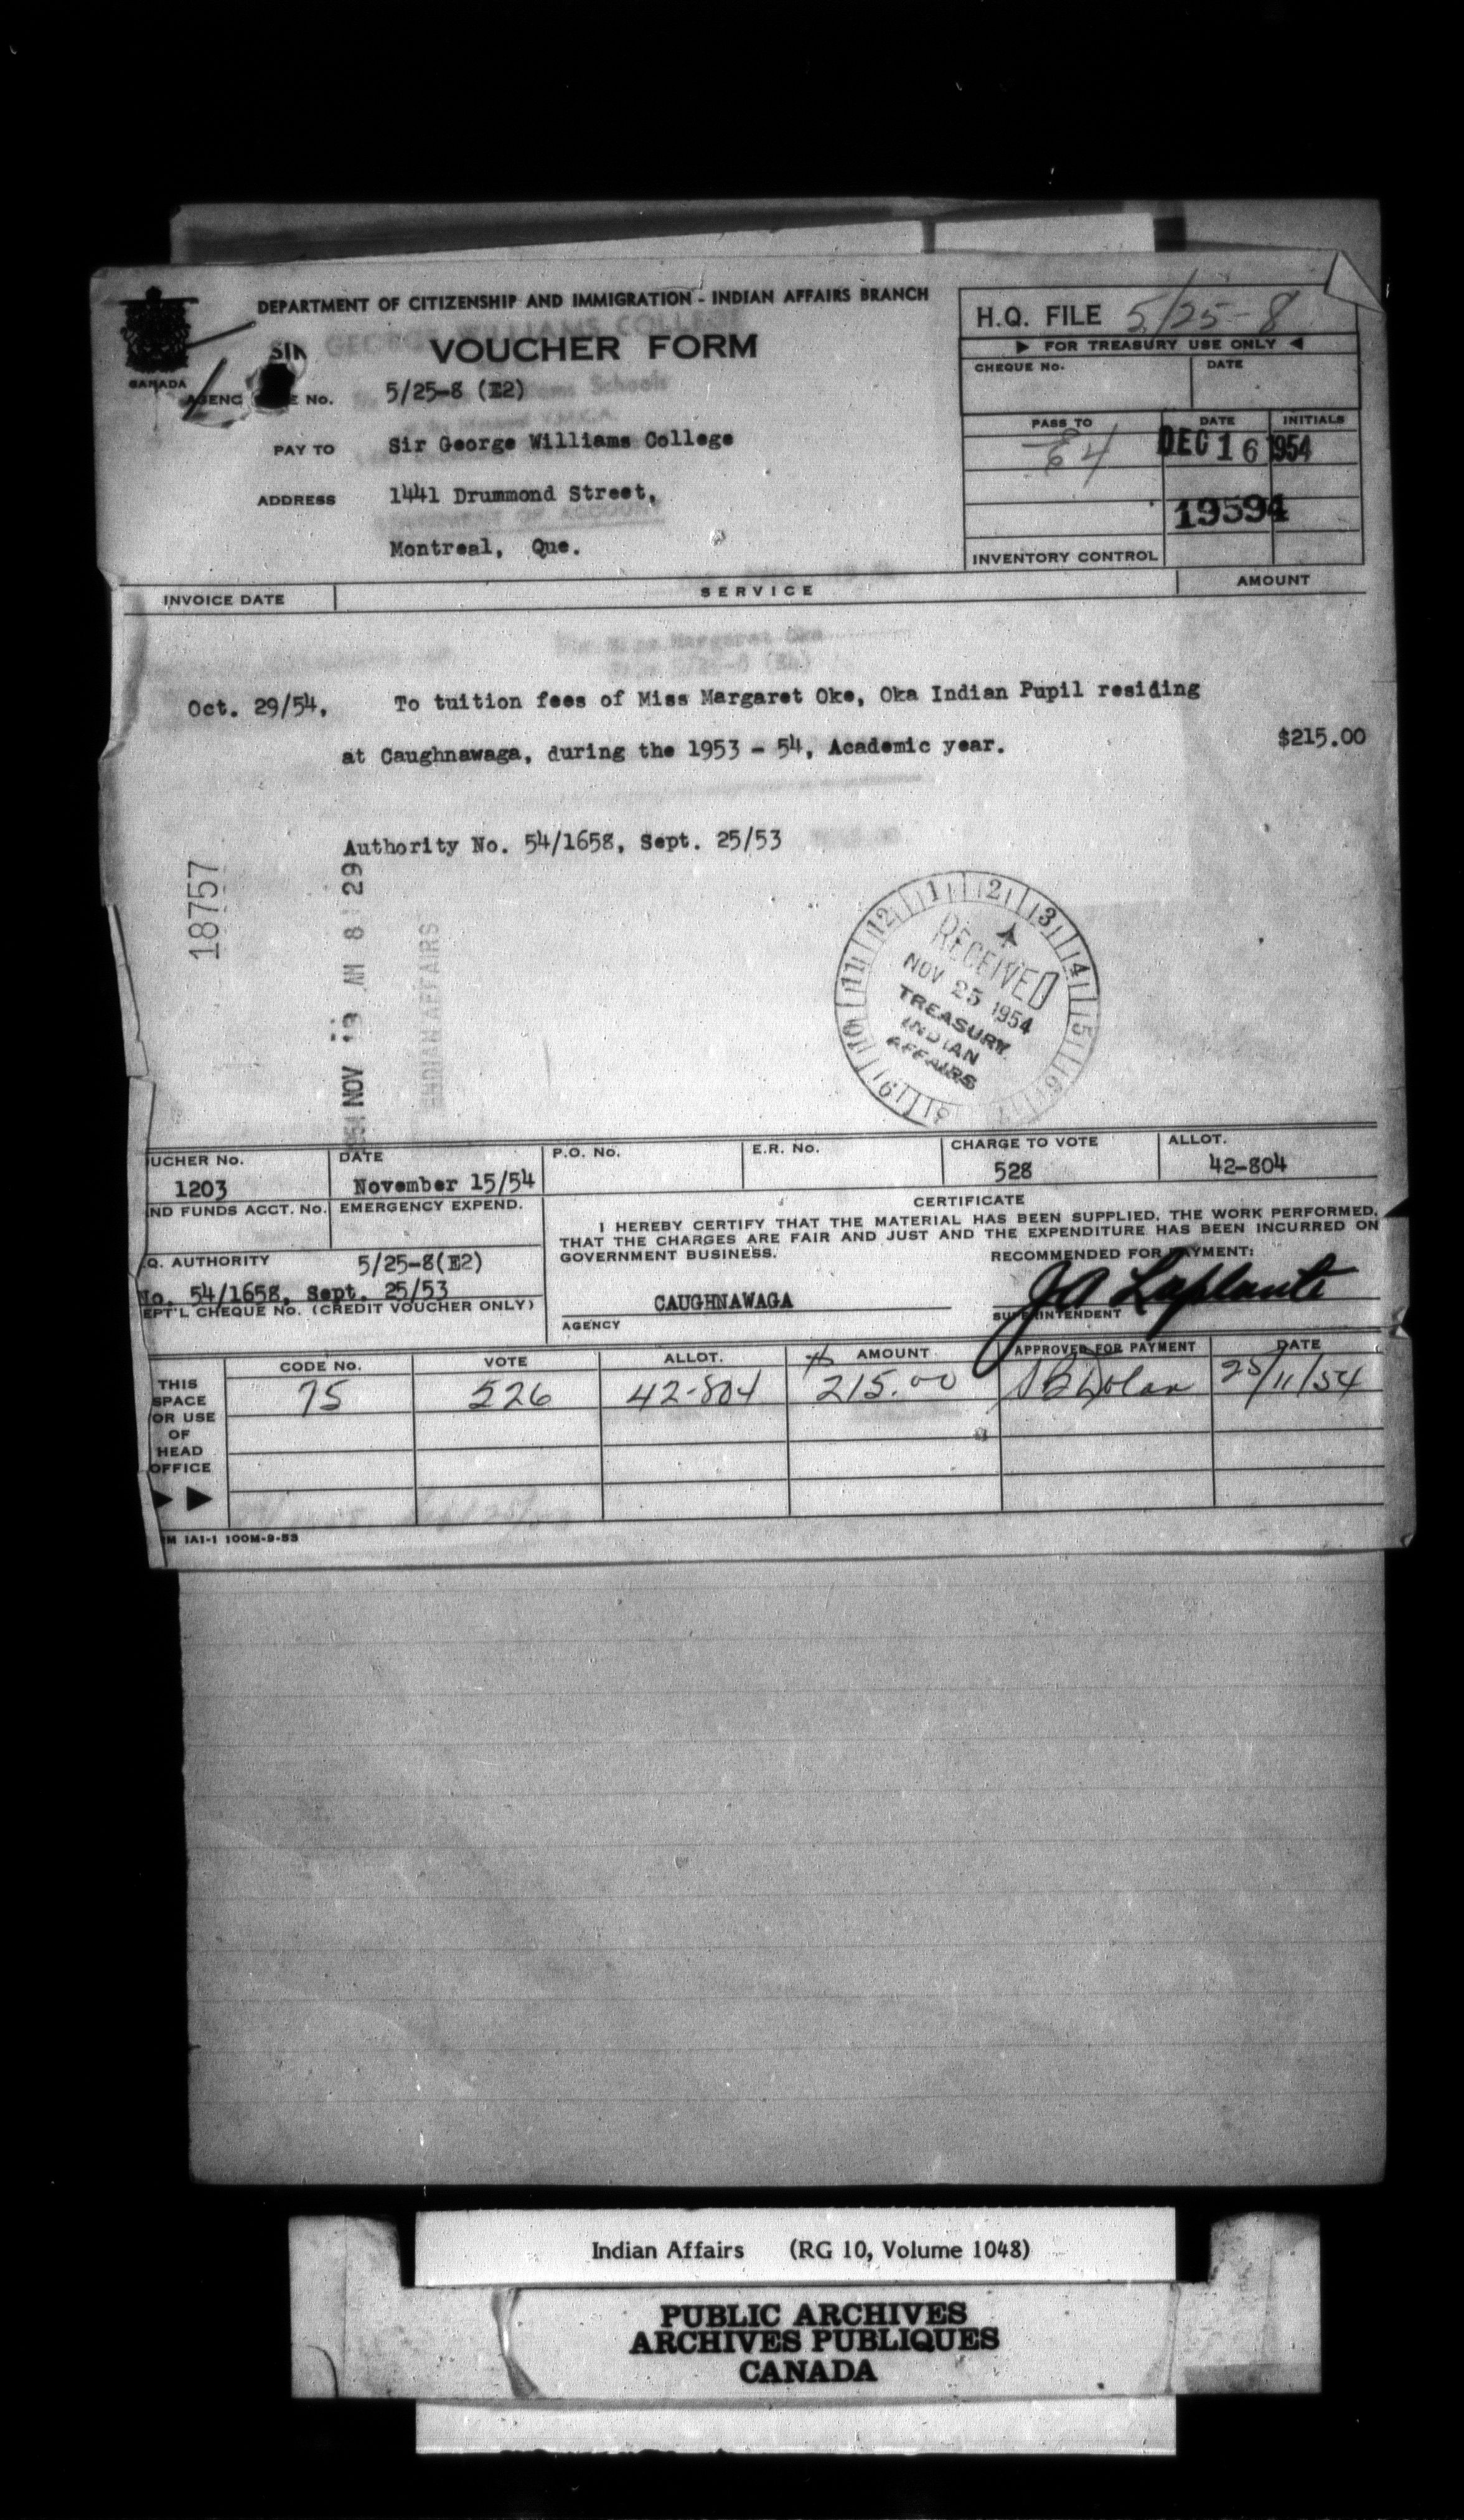 DEPARTMENT OF CITIZENSHIP AND IMMIGRATION - INDIAN AFFAIRS BRANCH
GEORGE WILLIAMS COLLEGE
SIR
VOUCHER FORM
CANADA
H.Q. FILE 5/25-8
▶ FOR TREASURY USE ONLY ◀
CHEQUE No. DATE
AGENC E No. 5/25-8 (E2)
PASS TO DATE INITIALS
E4 DEC 16 1954
PAY TO Sir George Williams College
ADDRESS 1441 Drummond Street,
STATEMENT OF ACCOUNT
19594
Montreal, Que.
INVENTORY CONTROL
INVOICE DATE SERVICE AMOUNT
Miss Margaret Oke
5/25-8 (E4)
Oct. 29/54, To tuition fees of Miss Margaret Oke, Oka Indian Pupil residing
at Caughnawaga, during the 1953 - 54, Academic year. $215.00
Authority No. 54/1658, Sept. 25/53
18757
NOV 19 AM 8 29
INDIAN AFFAIRS
12 1 2 3 4 5 6 7 8 9 10 11
RECEIVED
NOV 25 1954
TREASURY
INDIAN
AFFAIRS
UCHER No. DATE P.O. No. E.R. No. CHARGE TO VOTE ALLOT.
1203 November 15/54 528 42-804
ND FUNDS ACCT. No. EMERGENCY EXPEND.
CERTIFICATE
I HEREBY CERTIFY THAT THE MATERIAL HAS BEEN SUPPLIED, THE WORK PERFORMED,
THAT THE CHARGES ARE FAIR AND JUST AND THE EXPENDITURE HAS BEEN INCURRED ON
GOVERNMENT BUSINESS. RECOMMENDED FOR PAYMENT:
Q. AUTHORITY 5/25-8(E2)
No. 54/1658, Sept. 25/53
EPT'L CHEQUE No. (CREDIT VOUCHER ONLY)
CAUGHNAWAGA
AGENCY
JA Laplante
SUPERINTENDENT
CODE No. VOTE ALLOT. AMOUNT APPROVED FOR PAYMENT DATE
75 526 42-804 215.00 Dolan 25/11/54
THIS
SPACE
OR USE
OF
HEAD
OFFICE
▶ ▶
M IA1-1 100M-9-53
Indian Affairs (RG 10, Volume 1048)
PUBLIC ARCHIVES
ARCHIVES PUBLIQUES
CANADA